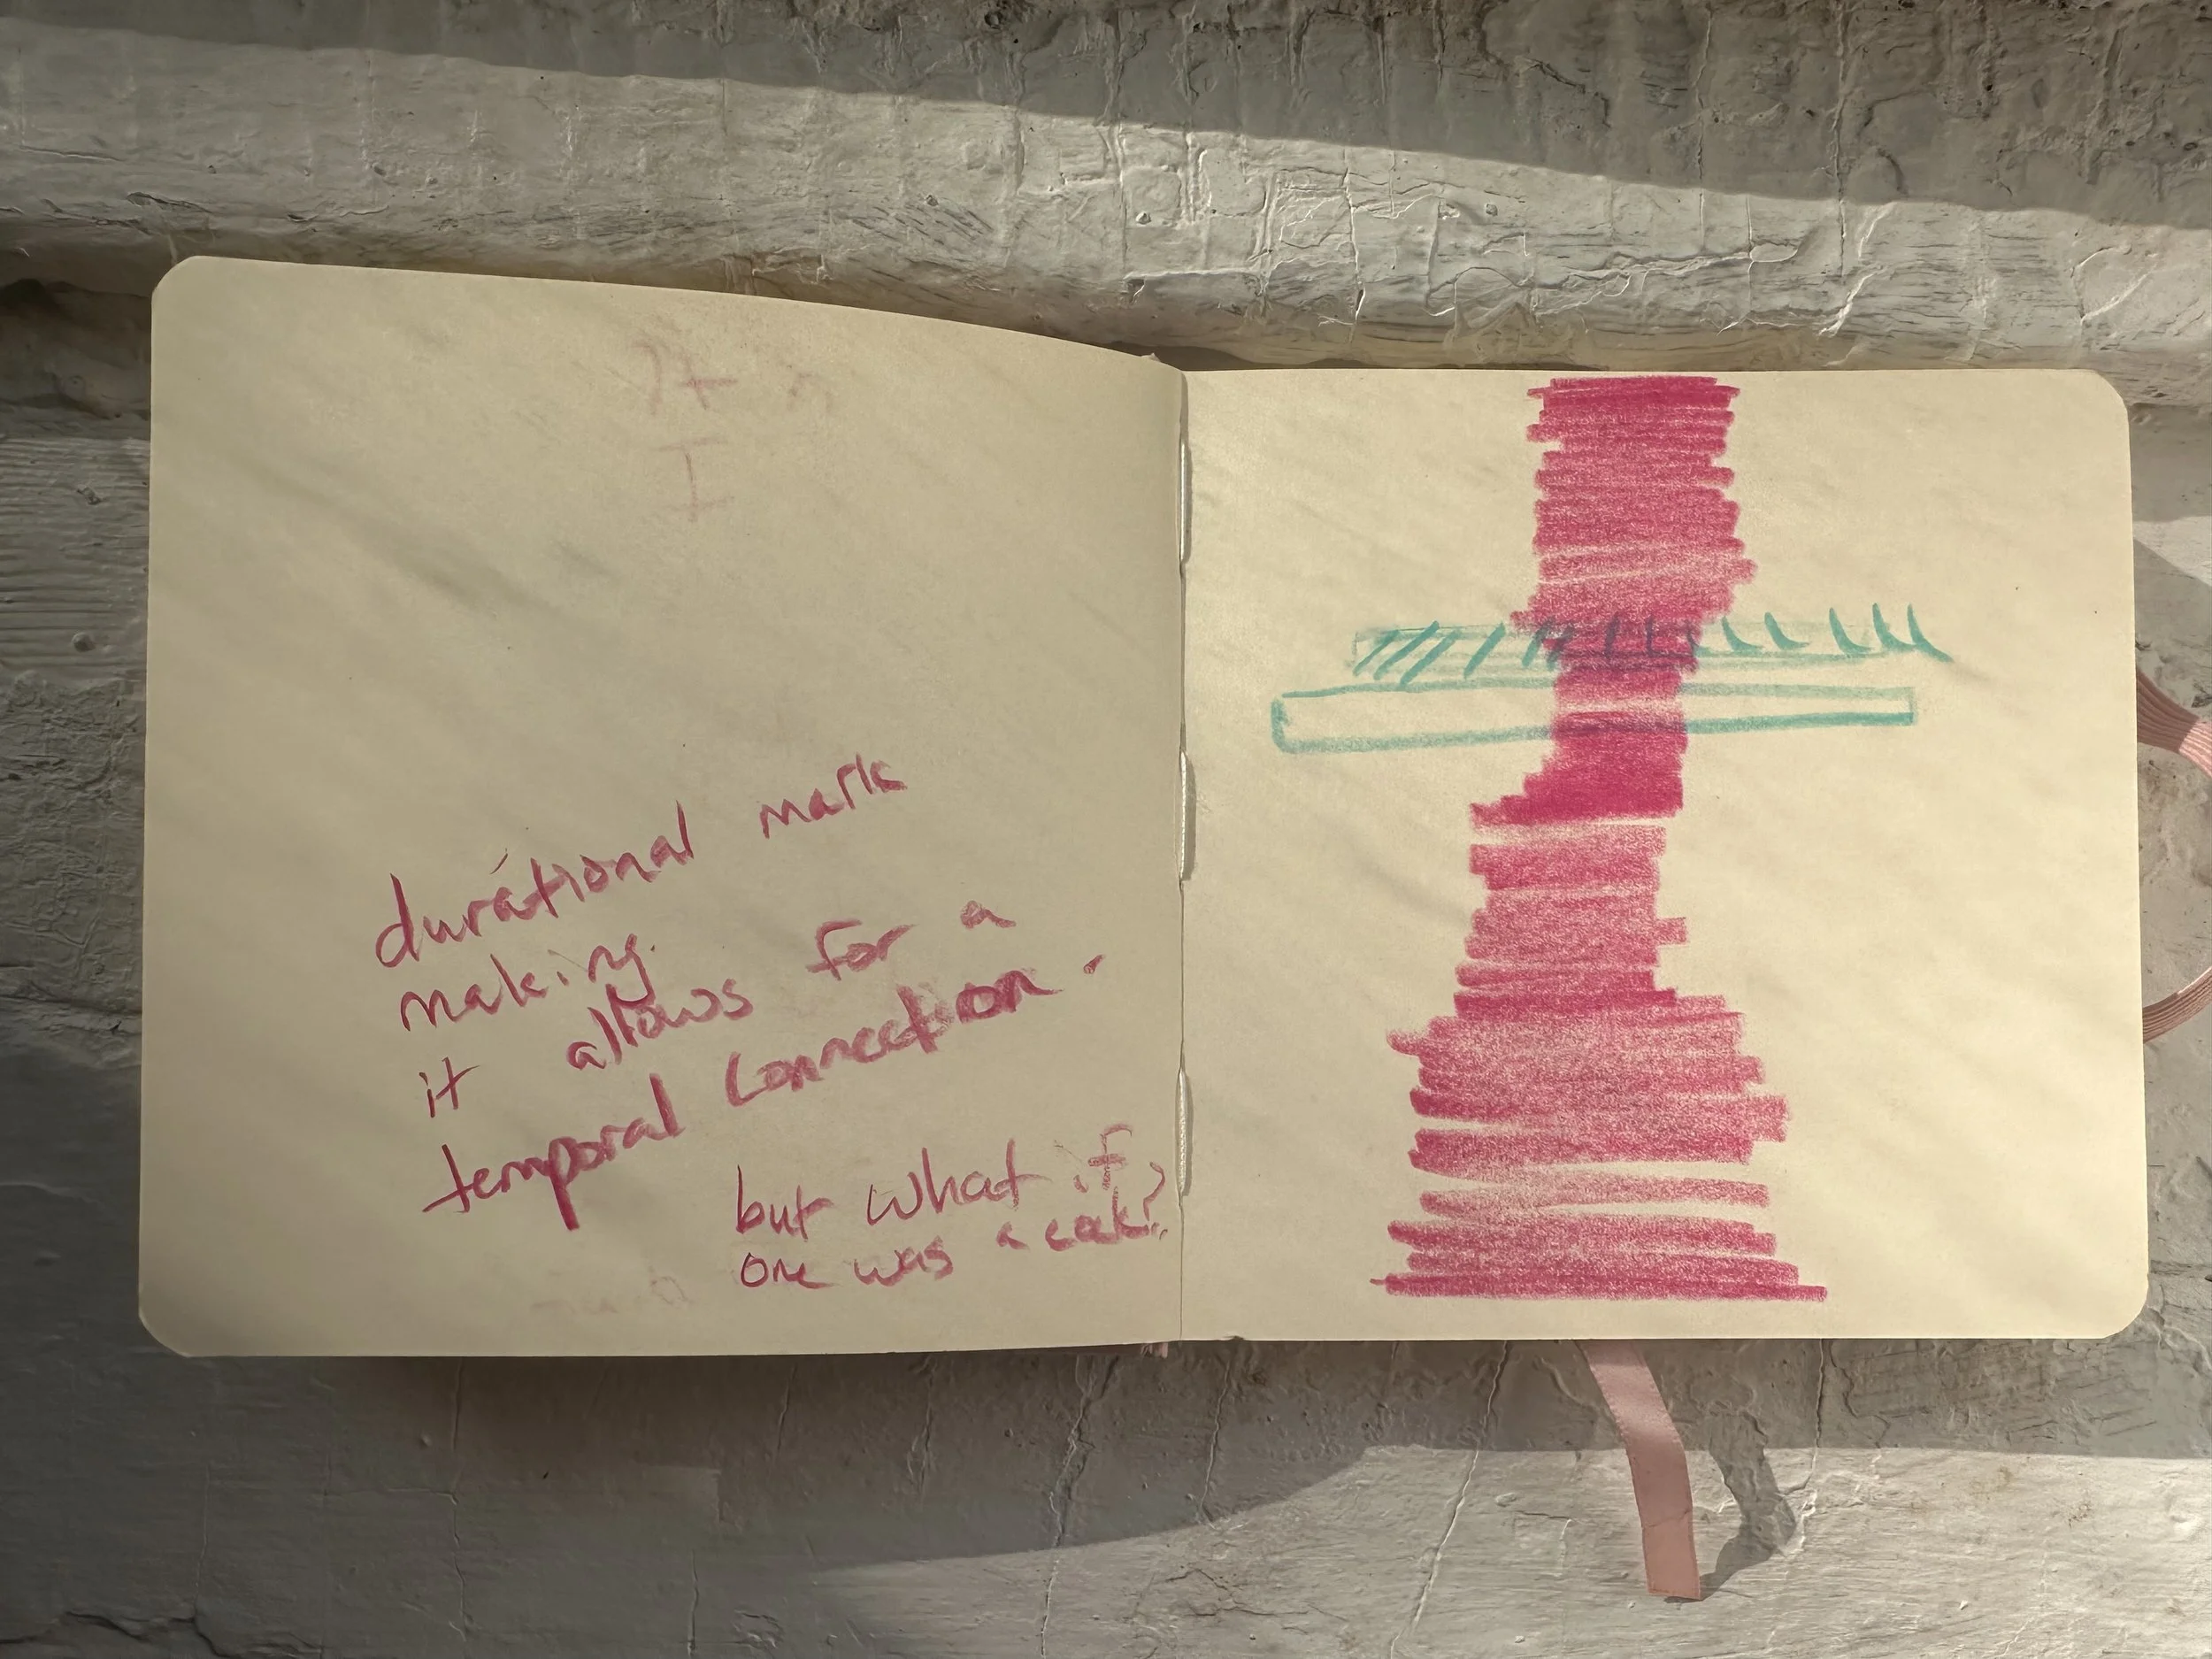 durational mark
making.
it allows for a
temporal connection.
but what if,
one was a